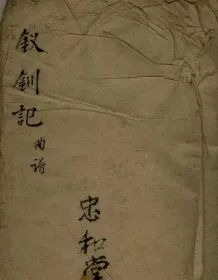 釵釧記曲譜
忠和堂